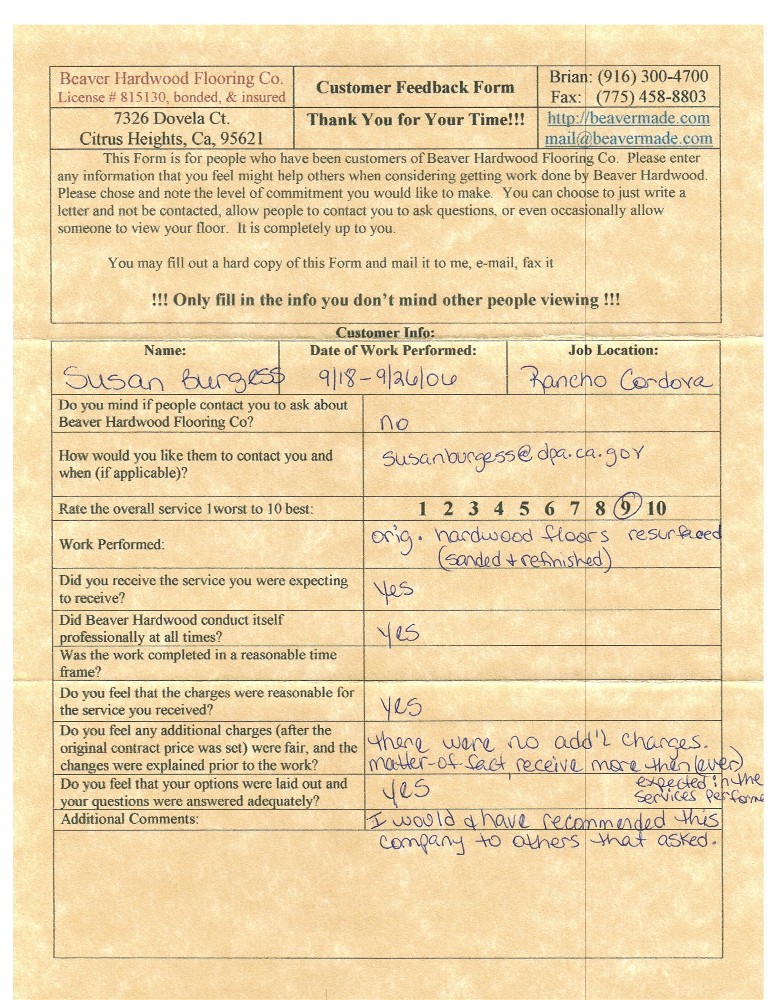 Beaver Hardwood Flooring Co.
License # 815130, bonded, & insured
Customer Feedback Form
Brian: (916) 300-4700
Fax: (775) 458-8803
7326 Dovela Ct.
Citrus Heights, Ca, 95621
Thank You for Your Time!!!
http://beavermade.com
mail@beavermade.com
This Form is for people who have been customers of Beaver Hardwood Flooring Co. Please enter
any information that you feel might help others when considering getting work done by Beaver Hardwood.
Please chose and note the level of commitment you would like to make. You can choose to just write a
letter and not be contacted, allow people to contact you to ask questions, or even occasionally allow
someone to view your floor. It is completely up to you.
You may fill out a hard copy of this Form and mail it to me, e-mail, fax it
!!! Only fill in the info you don't mind other people viewing !!!
Customer Info:
Name:
Date of Work Performed:
Job Location:
Susan Burgess
9/18-9/26/06
Rancho Cordova
Do you mind if people contact you to ask about
Beaver Hardwood Flooring Co?
no
How would you like them to contact you and
when (if applicable)?
susanburgess@dpa.ca.gov
Rate the overall service 1worst to 10 best:
1 2 3 4 5 6 7 8 9 10
Work Performed:
orig. hardwood floors resurfaced
(sanded + refinished)
Did you receive the service you were expecting
to receive?
yes
Did Beaver Hardwood conduct itself
professionally at all times?
yes
Was the work completed in a reasonable time
frame?
Do you feel that the charges were reasonable for
the service you received?
yes
Do you feel any additional charges (after the
original contract price was set) were fair, and the
changes were explained prior to the work?
there were no add'l charges.
matter-of fact receive more then (ever)
expected in the
services performe
Do you feel that your options were laid out and
your questions were answered adequately?
yes
Additional Comments:
I would & have recommended this
company to others that asked.